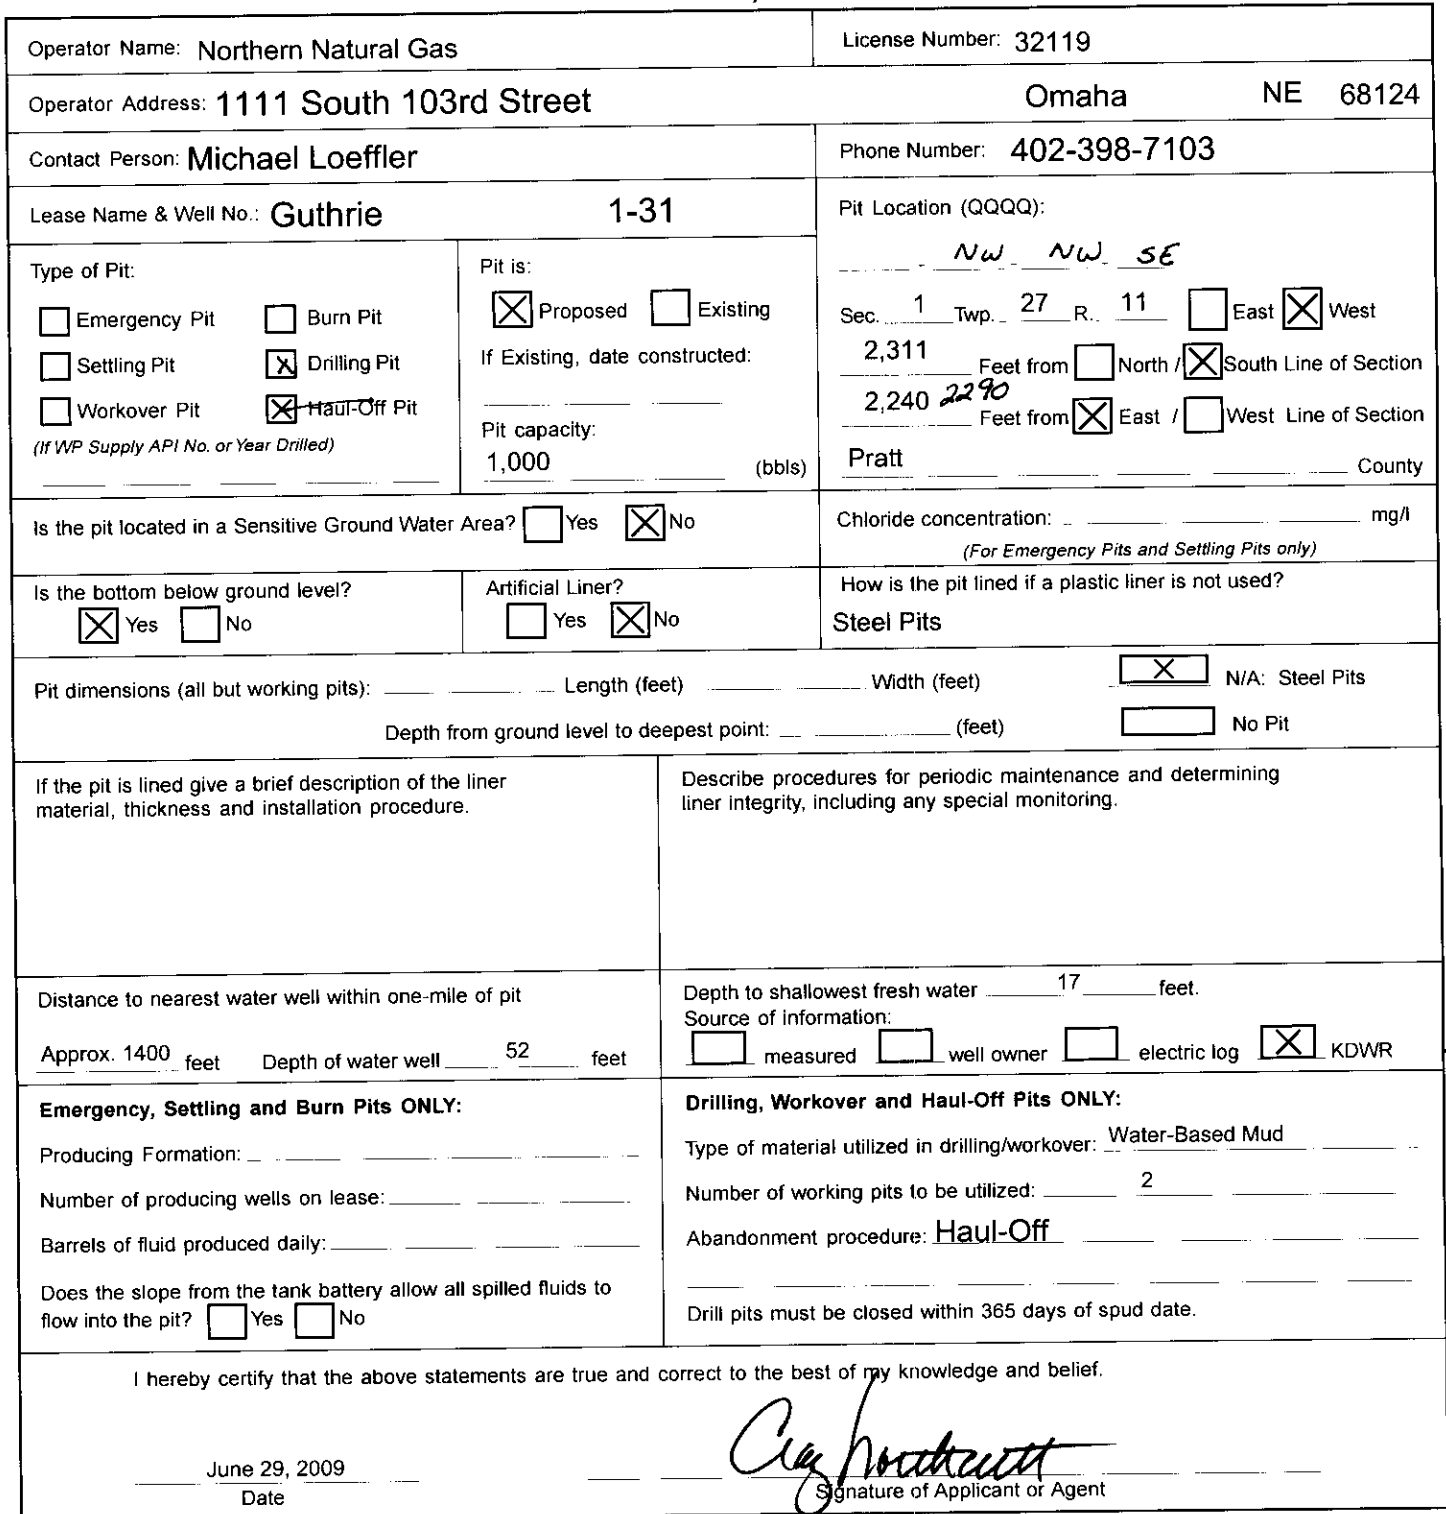 Operator Name: Northern Natural Gas
License Number: 32119
Operator Address: 1111 South 103rd Street Omaha NE 68124
Contact Person: Michael Loeffler
Phone Number: 402-398-7103
Lease Name & Well No.: Guthrie 1-31
Pit Location (QQQQ):
NW NW SE
Type of Pit:
Emergency Pit Burn Pit
Settling Pit X Drilling Pit
Workover Pit X Haul-Off Pit
(If WP Supply API No. or Year Drilled)
Pit is:
X Proposed Existing
If Existing, date constructed:
Pit capacity:
1,000 (bbls)
Sec. 1 Twp. 27 R. 11 East X West
2,311 Feet from North / X South Line of Section
2,240 2290 Feet from X East / West Line of Section
Pratt County
Is the pit located in a Sensitive Ground Water Area? Yes X No
Chloride concentration: mg/l
(For Emergency Pits and Settling Pits only)
Is the bottom below ground level?
X Yes No
Artificial Liner?
Yes X No
How is the pit lined if a plastic liner is not used?
Steel Pits
Pit dimensions (all but working pits): Length (feet) Width (feet) X N/A: Steel Pits
Depth from ground level to deepest point: (feet) No Pit
If the pit is lined give a brief description of the liner
material, thickness and installation procedure.
Describe procedures for periodic maintenance and determining
liner integrity, including any special monitoring.
Distance to nearest water well within one-mile of pit
Approx. 1400 feet Depth of water well 52 feet
Depth to shallowest fresh water 17 feet.
Source of information:
measured well owner electric log X KDWR
Emergency, Settling and Burn Pits ONLY:
Producing Formation:
Number of producing wells on lease:
Barrels of fluid produced daily:
Does the slope from the tank battery allow all spilled fluids to
flow into the pit? Yes No
Drilling, Workover and Haul-Off Pits ONLY:
Type of material utilized in drilling/workover: Water-Based Mud
Number of working pits to be utilized: 2
Abandonment procedure: Haul-Off
Drill pits must be closed within 365 days of spud date.
I hereby certify that the above statements are true and correct to the best of my knowledge and belief.
June 29, 2009
Date
Signature of Applicant or Agent